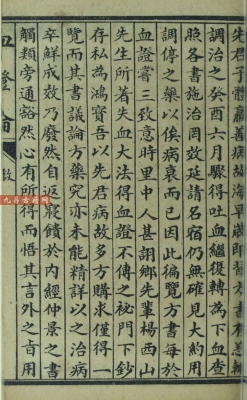 先君子體羸善病故海早歲即習方書有恙輒
調治之癸酉六月驟得吐血繼復轉為下血查
照各書施治罔效延請名宿仍無確見大約用
調停之藥以俟病衰而已因此徧覽方書每於
血證嘗三致意時里中人甚詡鄉先輩楊西山
先生所著失血大法得血證不傳之祕門下鈔
存私為鴻寶吾以先君病故多方購求僅得一
覽而其書議論方藥究亦未能精詳以之治病
卒鮮成效乃發然自返寢饋於內經仲景之書
觸類旁通豁然心有所得而悟其言外之旨用
血證論 敘